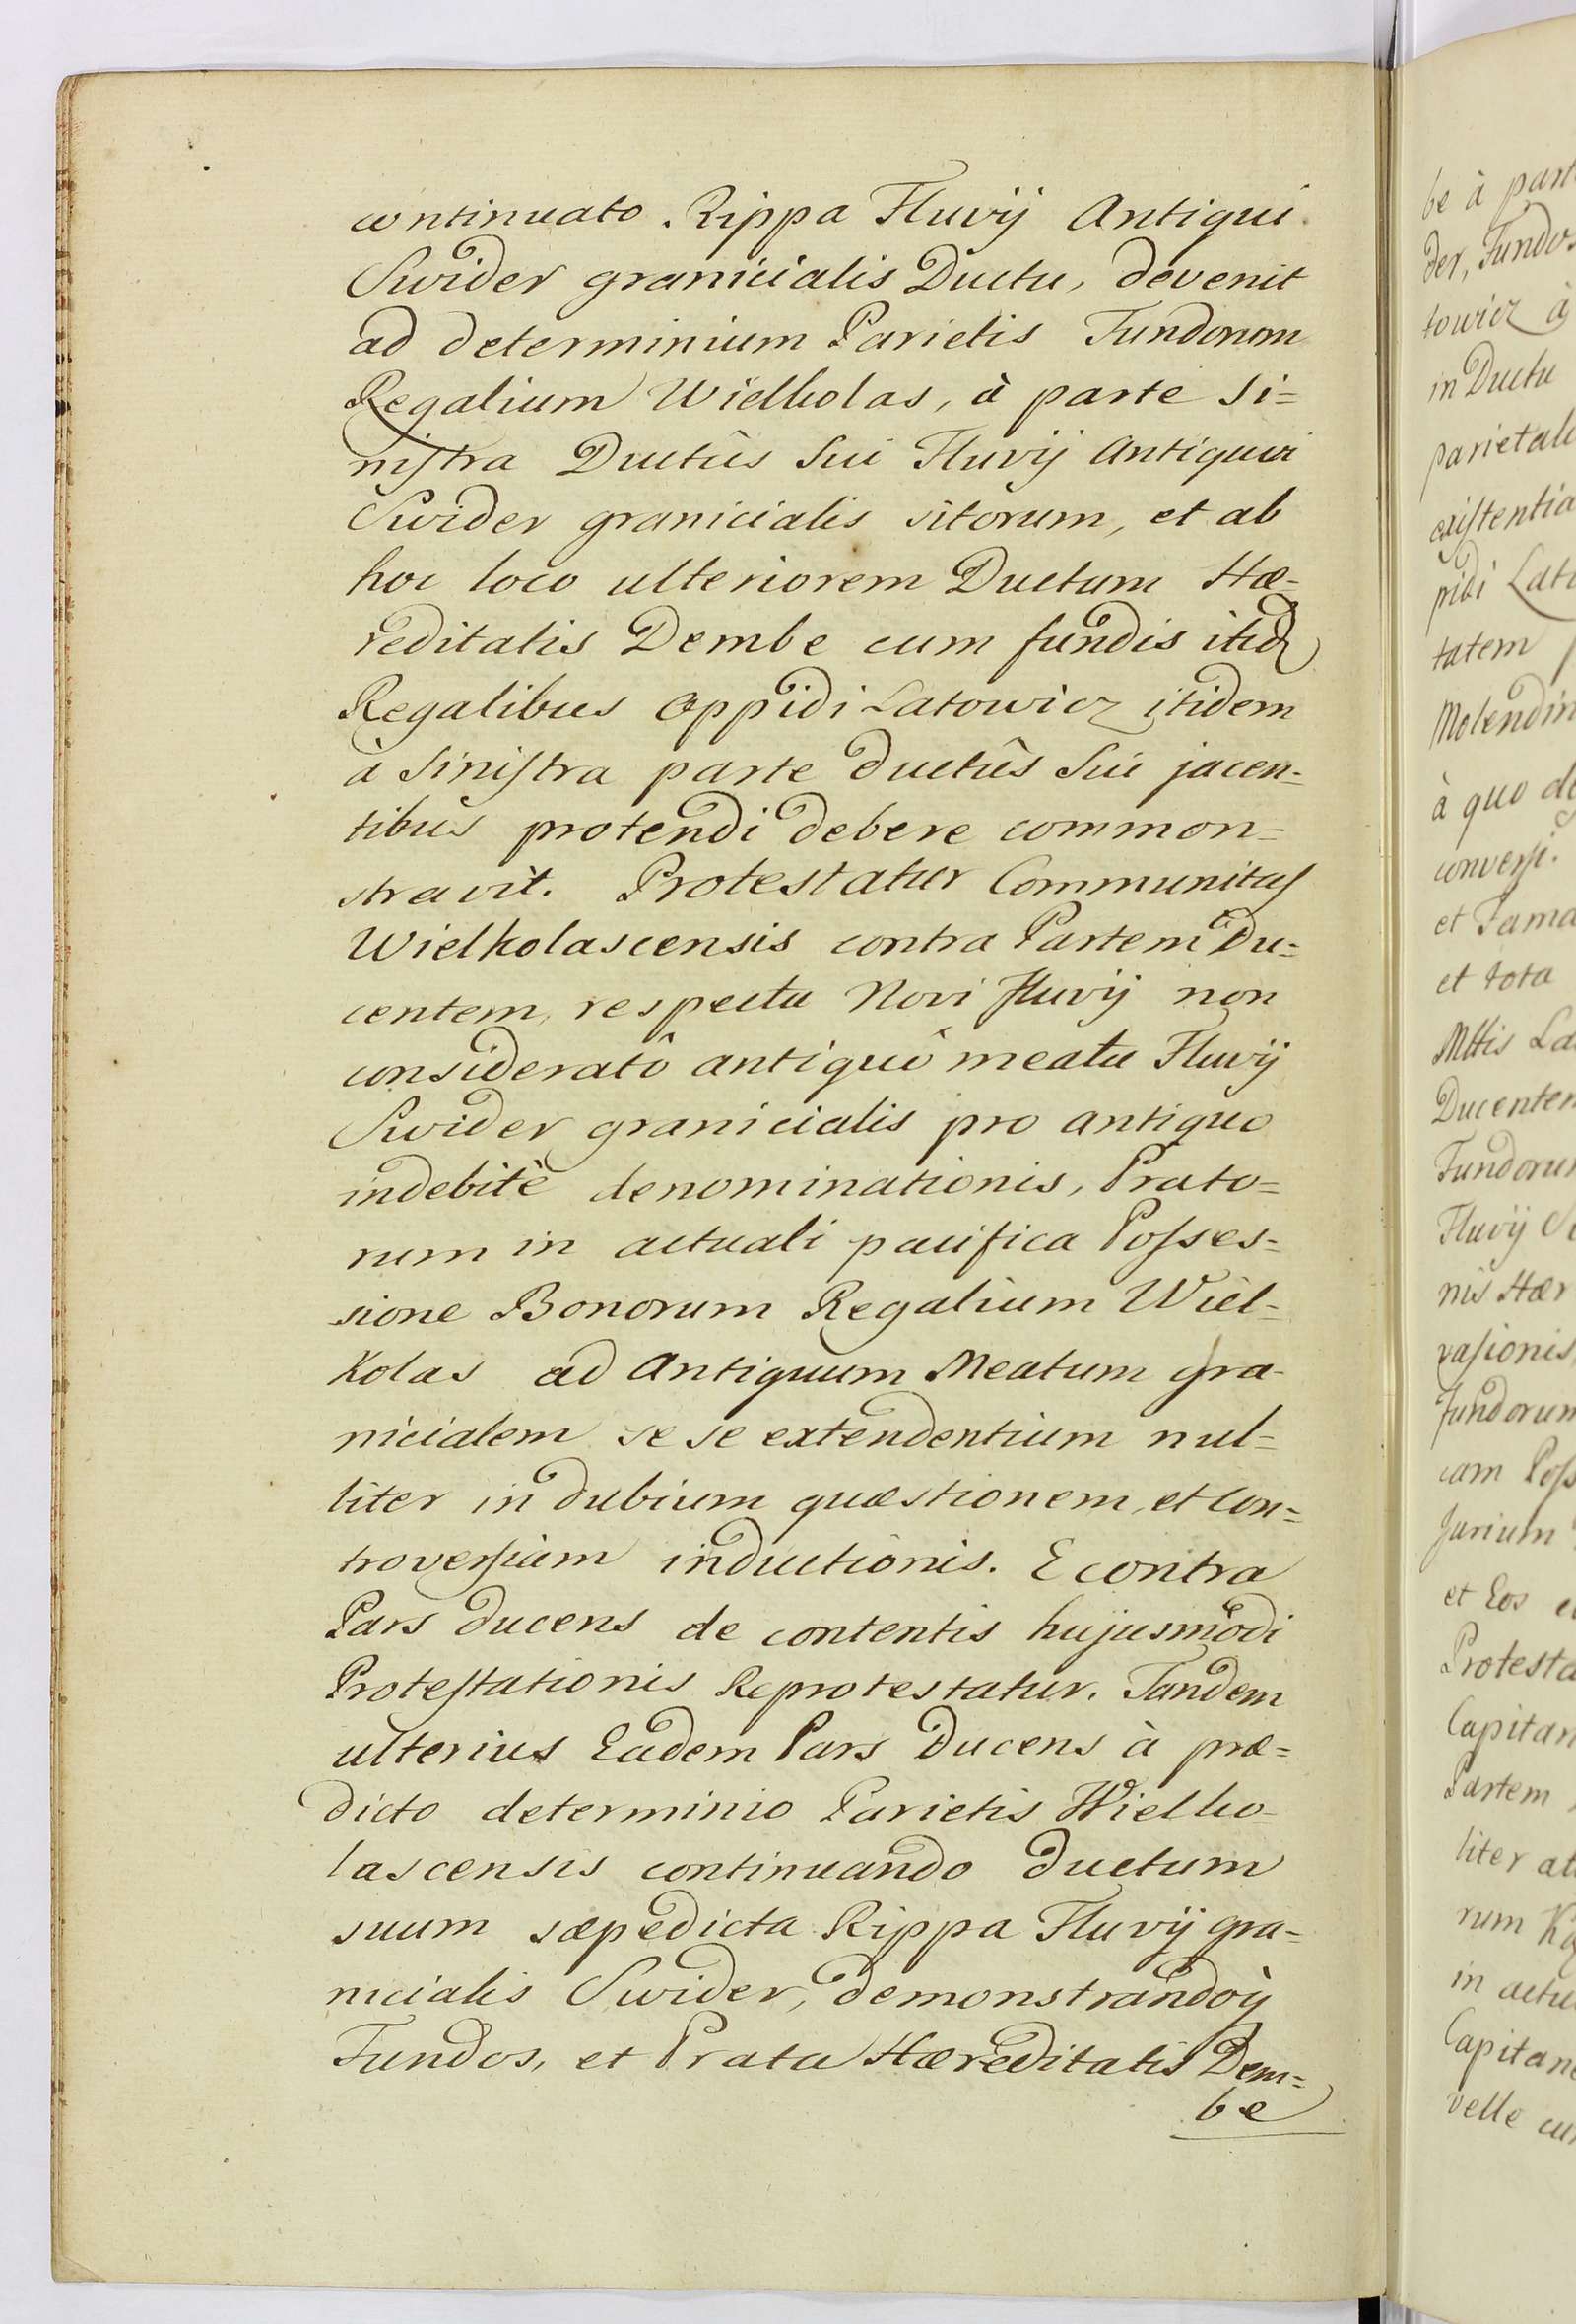 continuato. Rippa Fluvij Antiqui
Swider granicialis Ductu, devenit
ad determinium Parietis Fundorum
Regalium Wielkolas, à parte Si=
nistra Ductûs Sui Fluvij Antiqui
Swider granicialis sitorum, et ab
hoc loco ulteriorem Ductum Hæ=
reditatis Dembe cum fundis itid
Regalibus Oppidi Latowicz itidem
à Sinistra parte ductûs Sui jacen=
tibus protendi debere common=
stravit. Protestatur Communitas
Wielkolascensis contra Partem Du=
centem, respectu Novi Fluvij non
consideratô antiquô meatu Fluvij
Swider granicialis pro antiquo
indebitè denominationis, Prato=
rum in actuali pacifica Posses=
sione Bonorum Regalium Wiel=
kolas ad Antiquum Meatum gra-
nicialem se se extendentium nul=
liter in dubium quæstionem, et Con=
troversiam inductionis. E contra
Pars ducens de contentis hujusmodi
Protestationis Reprotestatur. Tandem
ulterius Eadem Pars Ducens à præ=
dicto determinio Parietis Wielko-
lascensis continuando ductum
suum sæpedicta Rippa Fluvij gra=
nicialis Swider, demonstrandoq
Fundos, et Prata Hæreditatis Dem=
be
be à part
der, Fundos
towicz à
in Ductu
parietal
existentia
pidi Lat
tatem
Molendin
à quo de
conversi.
et Fama
et tota
Mttis La
Ducentem
Fundorum
Fluvij S
nis Hær
vasionis
fundorum
cam Poss
Jurium
et Eos
Protesta
Capitan
Partem
liter at
rum
in actu
Capitane
velle cu